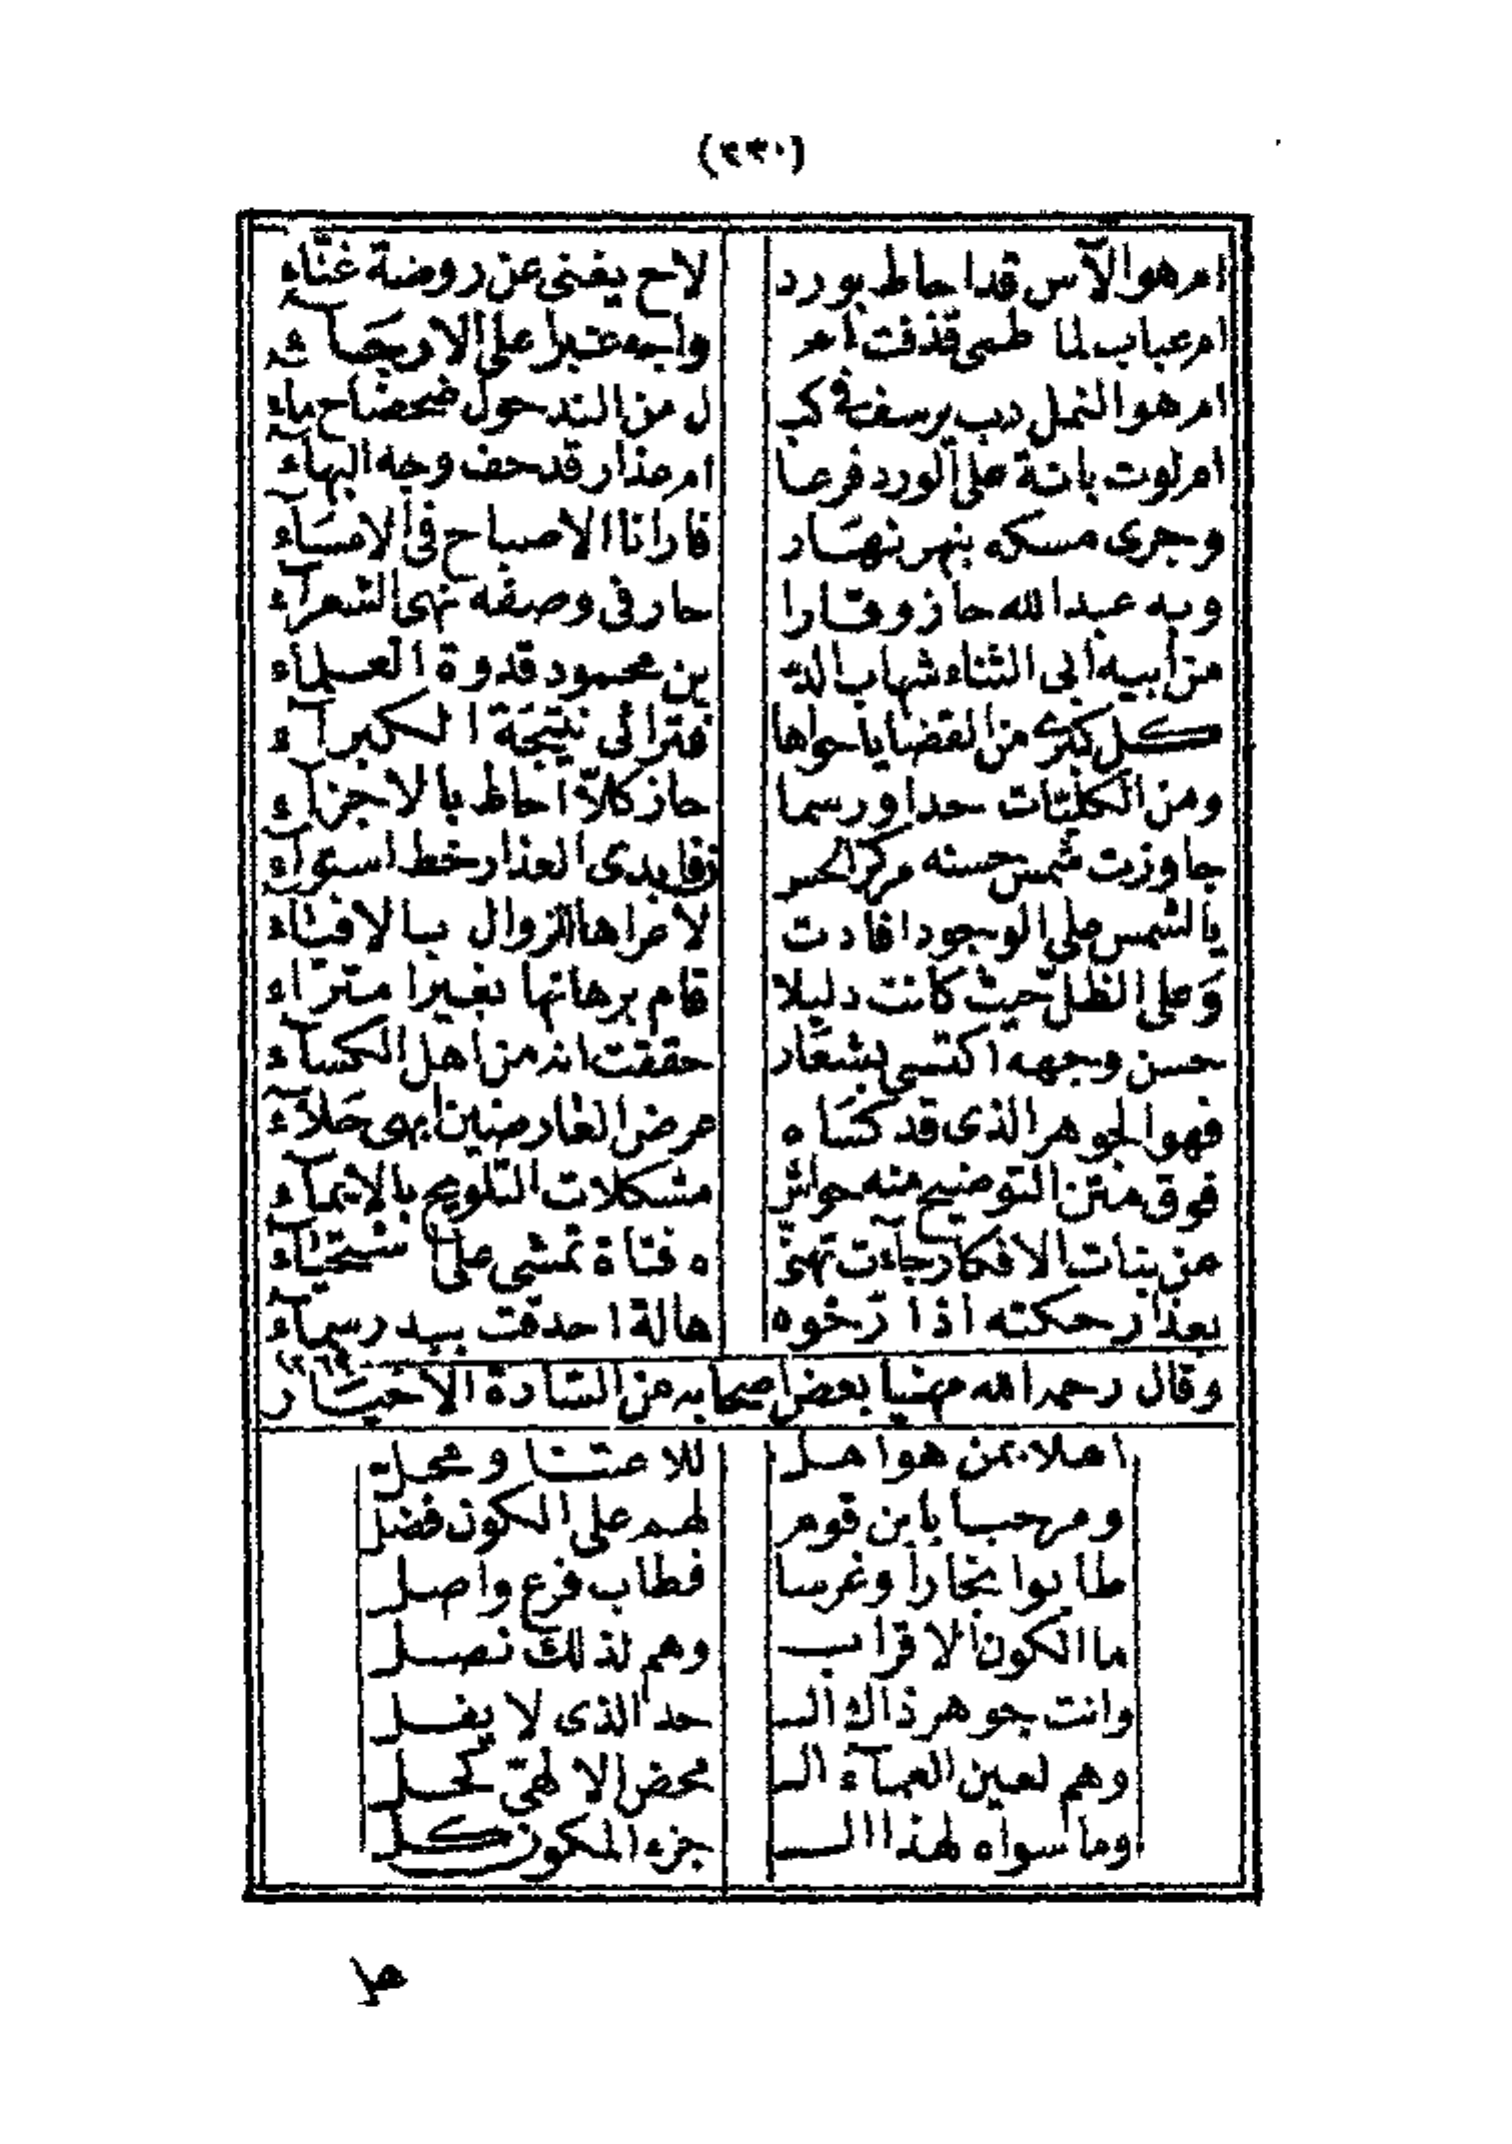 (٢٣٠)
ام هو الآس قد احاط بورد لاح يغنى عن روضة غنّاء
ام عباب لما طمى قذفت ام واجه عنبرا على الارجاء
ام هو النمل دب يرسف فى كب ل من الند حول ضحضاح ماء
ام لوت بانة على الورد فرعا ام عذار قد حف وجه البهاء
وجرى مسكه بنهر نهار فارانا الاصباح فى الامساء
وبه عبد الله حاز وقارا حار فى وصفه نهى الشعراء
من أبيه أبى الثناء شهاب الد ين محمود قدوة العلماء
كل كبرى من القضايا حواها فترائى نتيجة الكبراء
ومن الكليّات حدا ورسما حاز كلاّ احاط بالاجزاء
جاوزت شمس حسنه مركز الحسن فابدى العذار خط استواء
يالشمس على الوجود افادت لا عراها الزوال بالافناء
وعلى الظل حيث كانت دليلا قام برهانها بغير امتراء
حسن وجهه اكتسى بشعار حققت انه من اهل الكساء
فهو الجوهر الذى قد كساه عرض العارضين ابهى حلاء
فوق متن التوضيح منه حواش مشكلات التلويح بالايماء
من بنات الافكار جآءت تهنى ه فتاة تمشى على استحياء
بعذار حكته اذ ارخوه هالة احدقت ببدر سماء
وقال رحمه الله مهنيا بعض اصحابه من السادة الاخيار
اهلا بمن هو اهل للاعتنا ومحل
ومرحبا يابن قوم لهم على الكون فضل
طابوا نجارا وغرسا فطاب فرع واصل
ما الكون الا قراب وهم لذلك نصل
وانت جوهر ذاك الـ حد الذى لا يفل
وهم لعين العمآء الـ محض الالهىّ كحل
وما سواه لهذا الـ جزء المكون كل